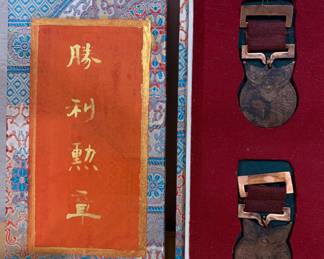 勝利勲章